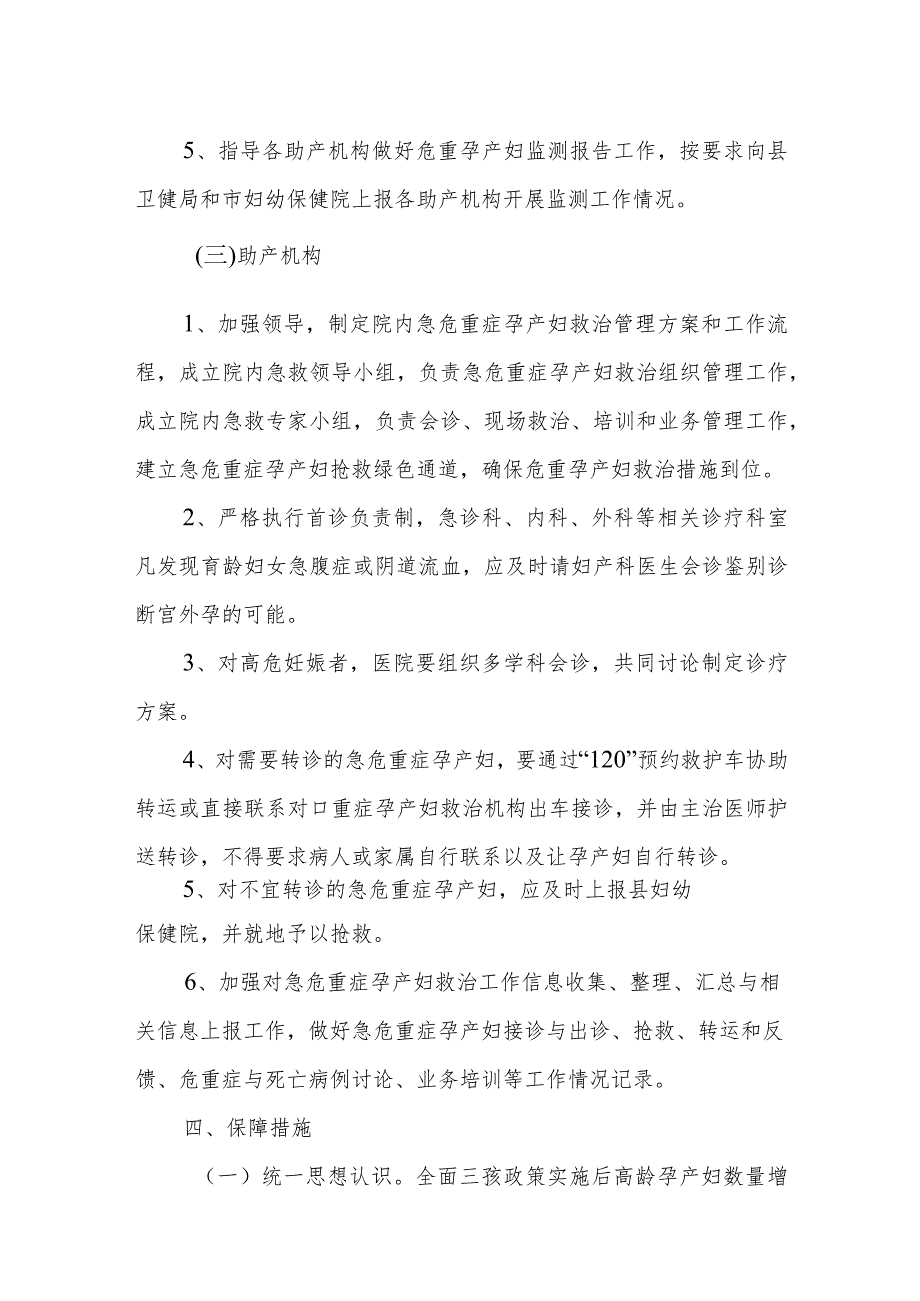 5、指导各助产机构做好危重孕产妇监测报告工作，按要求向县
卫健局和市妇幼保健院上报各助产机构开展监测工作情况。
(三)助产机构
1、加强领导，制定院内急危重症孕产妇救治管理方案和工作流
程，成立院内急救领导小组，负责急危重症孕产妇救治组织管理工作，
成立院内急救专家小组，负责会诊、现场救治、培训和业务管理工作，
建立急危重症孕产妇抢救绿色通道，确保危重孕产妇救治措施到位。
2、严格执行首诊负责制，急诊科、内科、外科等相关诊疗科室
凡发现育龄妇女急腹症或阴道流血，应及时请妇产科医生会诊鉴别诊
断宫外孕的可能。
3、对高危妊娠者，医院要组织多学科会诊，共同讨论制定诊疗
方案。
4、对需要转诊的急危重症孕产妇，要通过“120”预约救护车协助
转运或直接联系对口重症孕产妇救治机构出车接诊，并由主治医师护
送转诊，不得要求病人或家属自行联系以及让孕产妇自行转诊。
5、对不宜转诊的急危重症孕产妇，应及时上报县妇幼
保健院，并就地予以抢救。
6、加强对急危重症孕产妇救治工作信息收集、整理、汇总与相
关信息上报工作，做好急危重症孕产妇接诊与出诊、抢救、转运和反
馈、危重症与死亡病例讨论、业务培训等工作情况记录。
四、保障措施
（一）统一思想认识。全面三孩政策实施后高龄孕产妇数量增